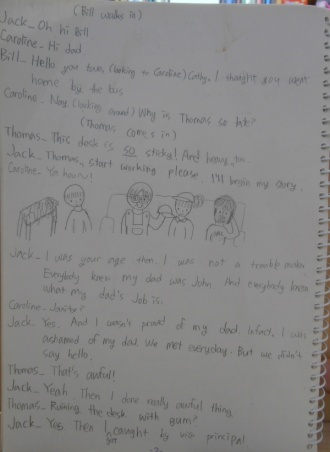 (Bill walks in)
Jack_ Oh hi Bill.
Caroline_ Hi dad
Bill_ Hello you two, (looking to Caroline) Cathy, I thought you went
home by the bus
Caroline_ Nay, (looking around) Why is Thomas so late?
(Thomas comes in)
Thomas_ This desk is so sticky! And heavy, too
Jack_ Thomas, start working please, I'll begin my story.
Caroline_ Ya hoow!
Jack_ I was your age then. I was not a trouble maker.
Everybody knew my dad was John. And everybody knew
what my dad's job is.
Caroline_ Janitor?
Jack_ Yes. And I wasn't proud of my dad. Infact, I was
ashamed of my dad. We met everyday. But we didn't
say hello.
Thomas_ That's awful!
Jack_ Yeah. Then I done really awful thing.
Thomas_ Ruining the desk with gum?
Jack_ Yes. Then I got caught by vice principal
-2-